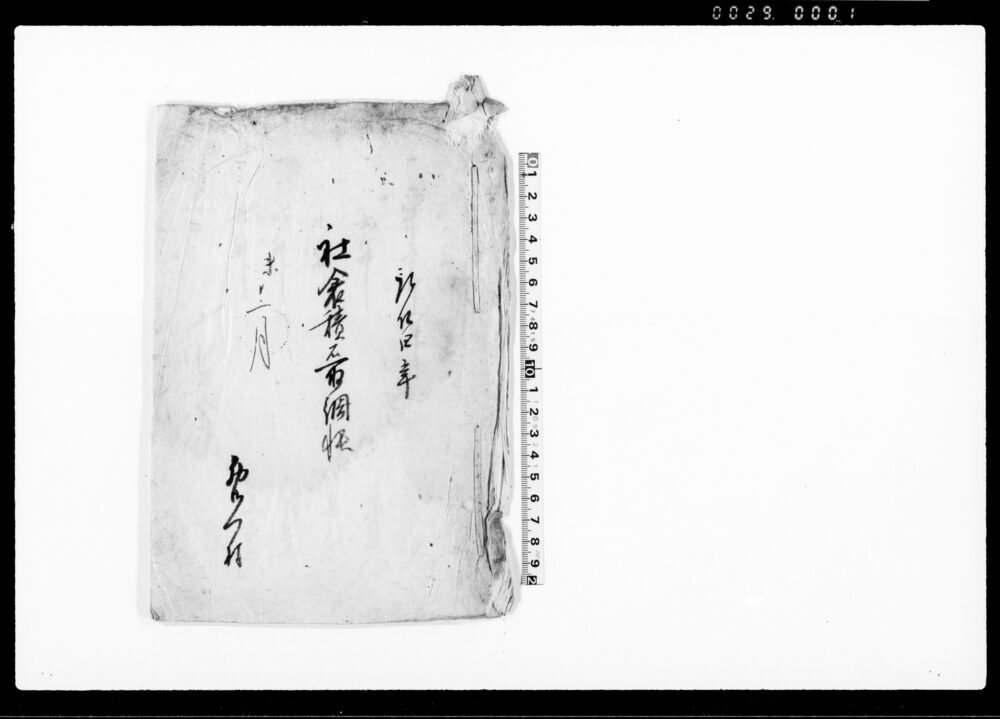 0029. 0001
弘化四年
社倉積石取調帳
未十二月
村
0 1 2 3 4 5 6 7 8 9 10 1 2 3 4 5 6 7 8 9 2